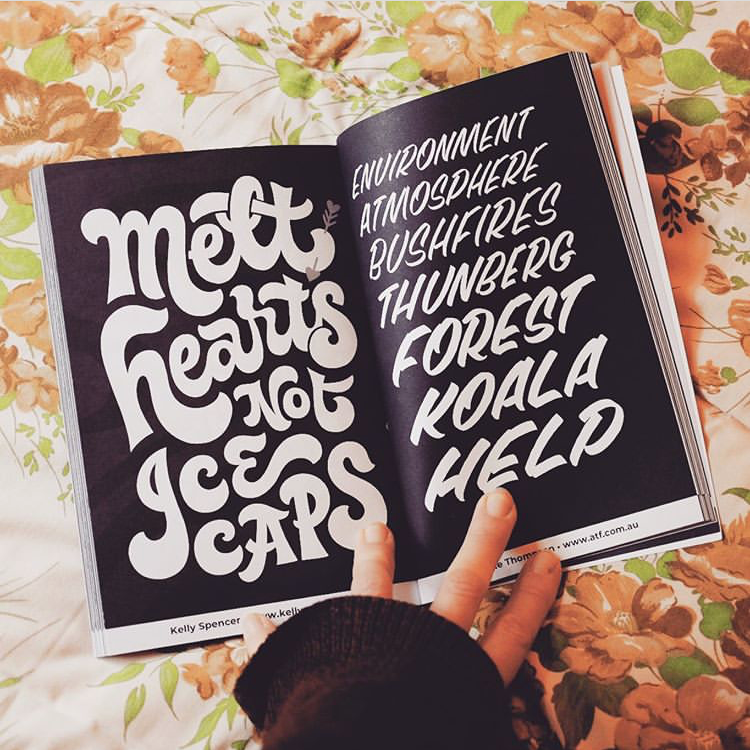 melt
hearts
Not
Ice
CAPS
Kelly Spencer
ENVIRONMENT
ATMOSPHERE
BUSHFIRES
THUNBERG
FOREST
KOALA
HELP
www.atf.com.au